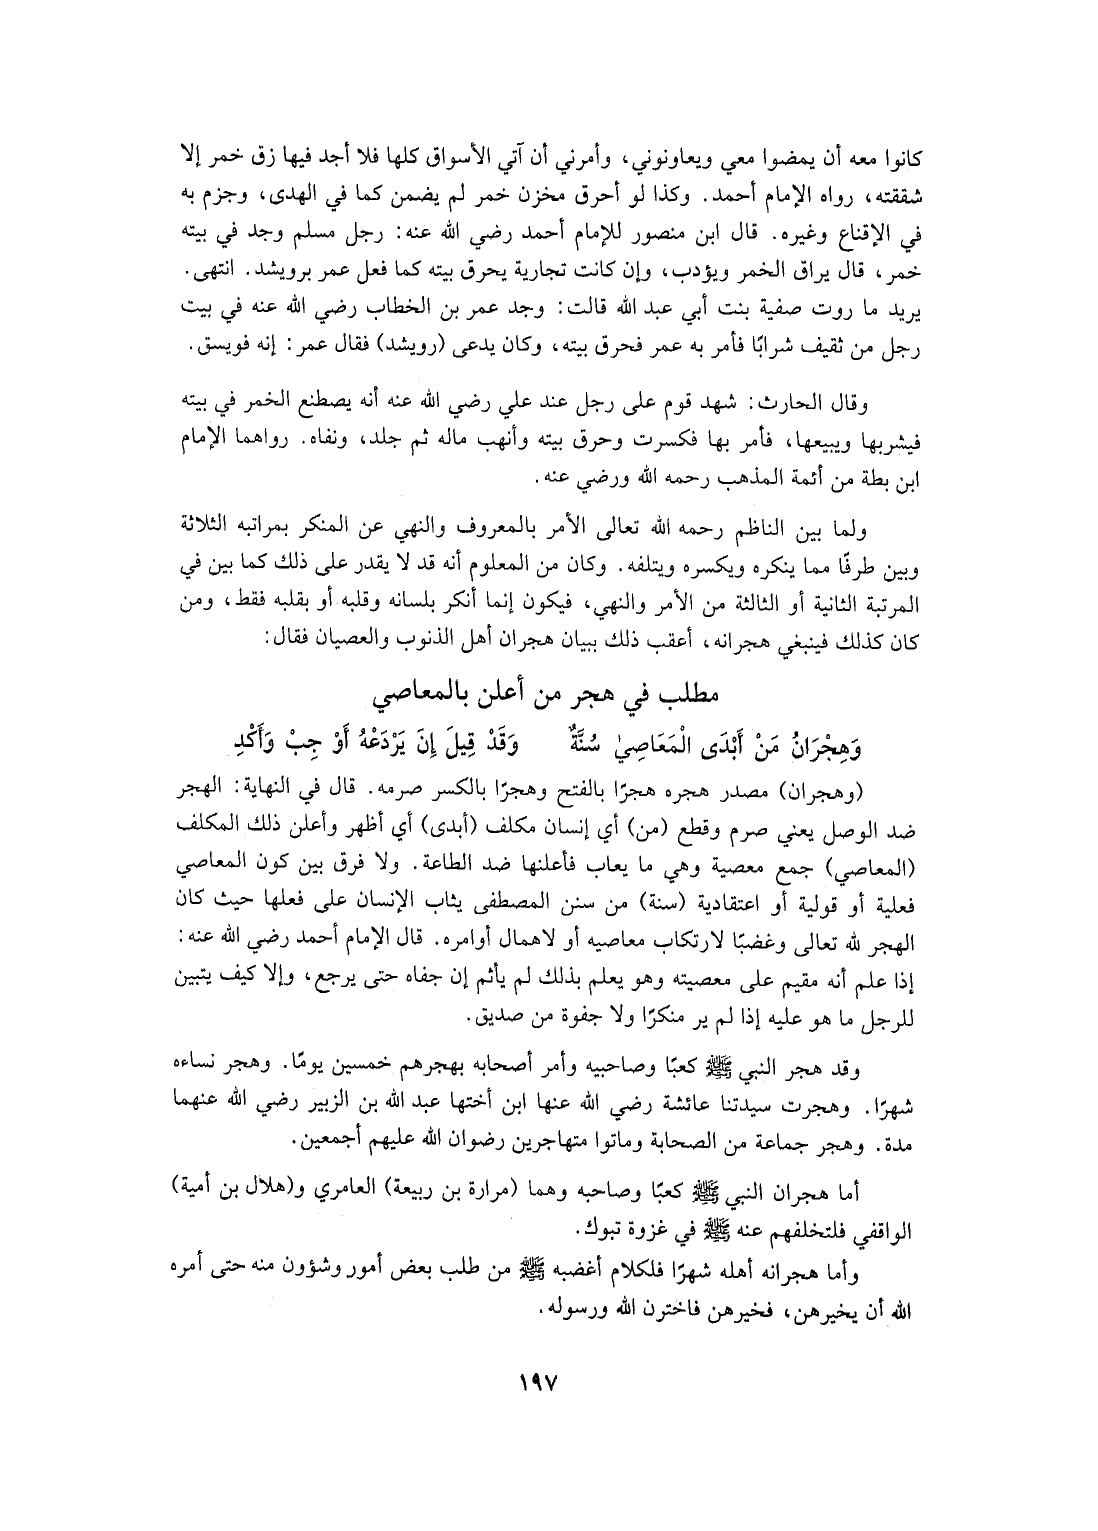 كانوا معه أن يمضوا معي ويعاونوني، وأمرني أن آتي الأسواق كلها فلا أجد فيها زق خمر إلا
شققته، رواه الإمام أحمد. وكذا لو أحرق مخزن خمر لم يضمن كما في الهدى، وجزم به
في الإقناع وغيره. قال ابن منصور للإمام أحمد رضي الله عنه: رجل مسلم وجد في بيته
خمر، قال يراق الخمر ويؤدب، وإن كانت تجارية يحرق بيته كما فعل عمر برويشد. انتهى.
يريد ما روت صفية بنت أبي عبد الله قالت: وجد عمر بن الخطاب رضي الله عنه في بيت
رجل من ثقيف شرابًا فأمر به عمر فحرق بيته، وكان يدعى (رويشد) فقال عمر: إنه فويسق.
وقال الحارث: شهد قوم على رجل عند علي رضي الله عنه أنه يصطنع الخمر في بيته
فيشربها ويبيعها، فأمر بها فكسرت وحرق بيته وأنهب ماله ثم جلد، ونفاه. رواهما الإمام
ابن بطة من أئمة المذهب رحمه الله ورضي عنه.
ولما بين الناظم رحمه الله تعالى الأمر بالمعروف والنهي عن المنكر بمراتبه الثلاثة
وبين طرفًا مما ينكره ويكسره ويتلفه. وكان من المعلوم أنه قد لا يقدر على ذلك كما بين في
المرتبة الثانية أو الثالثة من الأمر والنهي، فيكون إنما أنكر بلسانه وقلبه أو بقلبه فقط، ومن
كان كذلك فينبغي هجرانه، أعقب ذلك ببيان هجران أهل الذنوب والعصيان فقال:
مطلب في هجر من أعلن بالمعاصي
وَهِجْرَانُ مَنْ أَبْدَى الْمَعَاصِيٰ سُنَّةٌ وَقَدْ قِيلَ إِنَ يَرْدَعْهُ أَوْ جِبْ وَأَكْدِ
(وهجران) مصدر هجره هجرًا بالفتح وهجرًا بالكسر صرمه. قال في النهاية: الهجر
ضد الوصل يعني صرم وقطع (من) أي إنسان مكلف (أبدى) أي أظهر وأعلن ذلك المكلف
(المعاصي) جمع معصية وهي ما يعاب فأعلنها ضد الطاعة. ولا فرق بين كون المعاصي
فعلية أو قولية أو اعتقادية (سنة) من سنن المصطفى يثاب الإنسان على فعلها حيث كان
الهجر لله تعالى وغضبًا لارتكاب معاصيه أو لاهمال أوامره. قال الإمام أحمد رضي الله عنه:
إذا علم أنه مقيم على معصيته وهو يعلم بذلك لم يأثم إن جفاه حتى يرجع، وإلا كيف يتبين
للرجل ما هو عليه إذا لم ير منكرًا ولا جفوة من صديق.
وقد هجر النبي ﷺ كعبًا وصاحبيه وأمر أصحابه بهجرهم خمسين يومًا. وهجر نساءه
شهرًا. وهجرت سيدتنا عائشة رضي الله عنها ابن أختها عبد الله بن الزبير رضي الله عنهما
مدة. وهجر جماعة من الصحابة وماتوا متهاجرين رضوان الله عليهم أجمعين.
أما هجران النبي ﷺ كعبًا وصاحبه وهما (مرارة بن ربيعة) العامري و(هلال بن أمية)
الواقفي فلتخلفهم عنه ﷺ في غزوة تبوك.
وأما هجرانه أهله شهرًا فلكلام أغضبه ﷺ من طلب بعض أمور وشؤون منه حتى أمره
الله أن يخيرهن، فخيرهن فاخترن الله ورسوله.
١٩٧